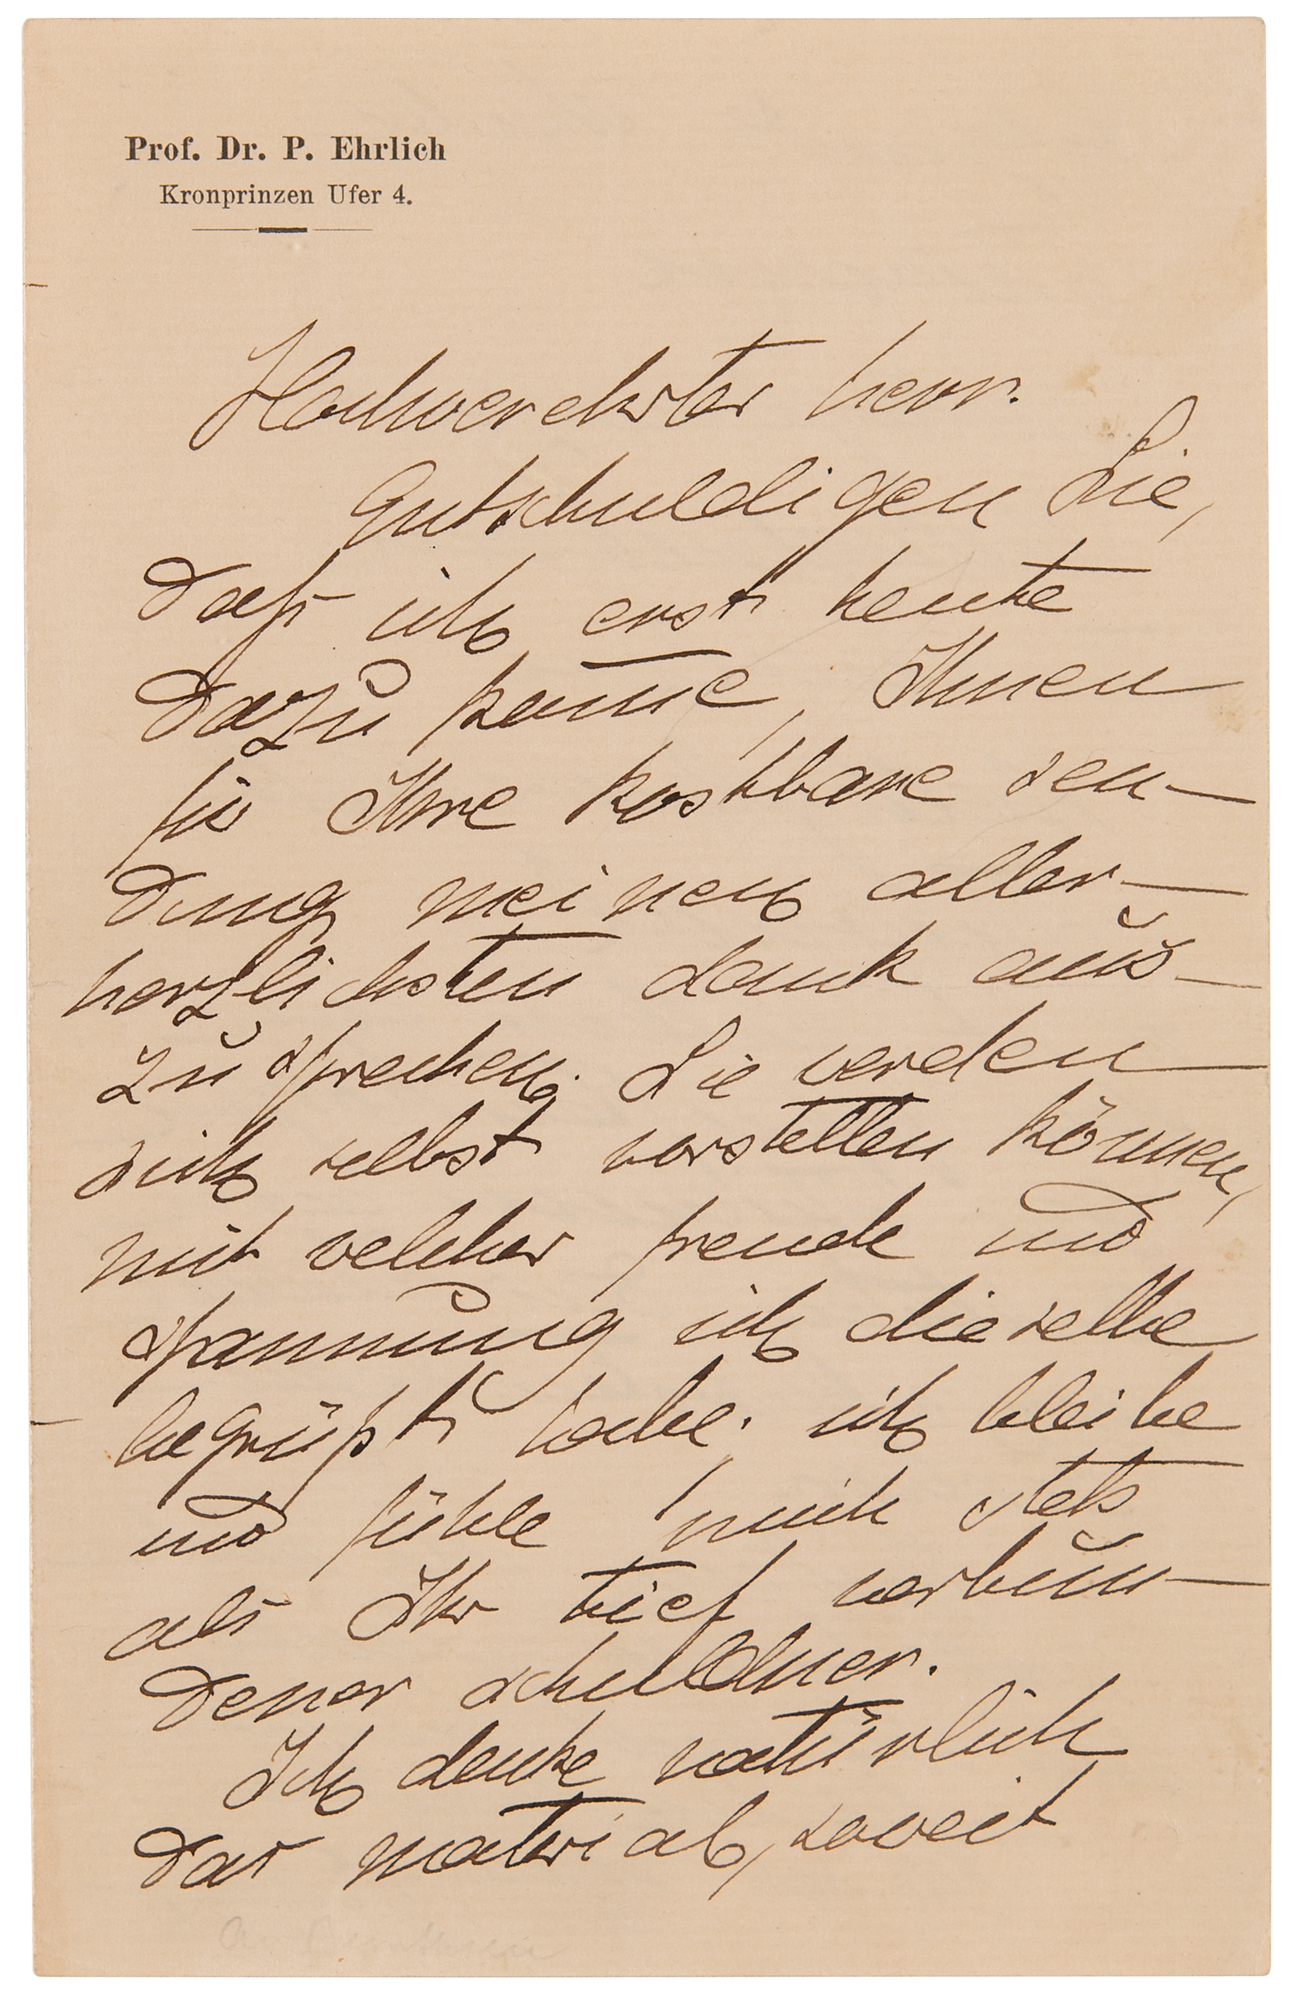 Prof. Dr. P. Ehrlich
Kronprinzen Ufer 4.
Hochverehrter herr.
Entschuldigen Sie,
daß ich erst heute
dazu kom̅e, Ihnen
für Ihre kostbare sen-
dung meinen aller-
herzlichsten dank aus-
zusprechen. Sie werden
sich selbst vorstellen können,
mit welcher freude und
spannung ich dieselbe
begrüßt habe; ich bleibe
und fühle mich stets
als Ihr tief verbun-
dener schuldner.
Ich denke natürlich
das material, soweit